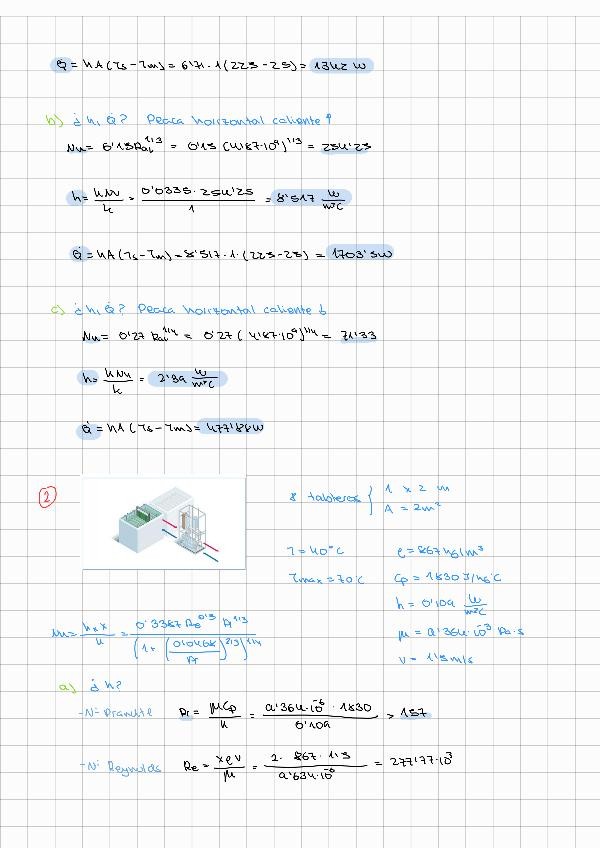 Q̇ = hA(Ts-T∞) = 6'71·1(225-25) = 1342 W
b) ¿h, Q̇? Placa horizontal caliente ↑
Nu = 0'15 Ra_L^1/3 = 0'15 (4'87·10⁹)^1/3 = 254'25
h = kNu/L = 0'0335·254'25/1 = 8'517 W/m²C
Q̇ = hA(Ts-T∞) = 8'517·1·(225-25) = 1703'5W
c) ¿h, Q̇? Placa horizontal caliente ↓
Nu = 0'27 Ra_L^1/4 = 0'27 (4'87·10⁹)^1/4 = 71'33
h = kNu/L = 2'39 W/m²C
Q̇ = hA(Ts-T∞) = 477'86W
2
8 tableros { 1 x 2 m
A = 2m²
T = 40°C
ρ = 867 kg/m³
Tmax = 70°C
Cp = 1830 J/kg°C
h = 0'109 W/m²C
μ = 9'364·10⁻³ Pa·s
v = 1'5 m/s
Nu = hx x/k = 0'3387 Re^0'5 Pr^1/3/(1+(0'0468/Pr)^2/3)^1/4
a) ¿h?
-Nº Prandtl Pr = μCp/k = 9'364·10⁻⁶·1830/0'109 = 157
-Nº Reynolds Re = xρv/μ = 2·867·1'5/9'634·10⁻⁶ = 277'77·10³